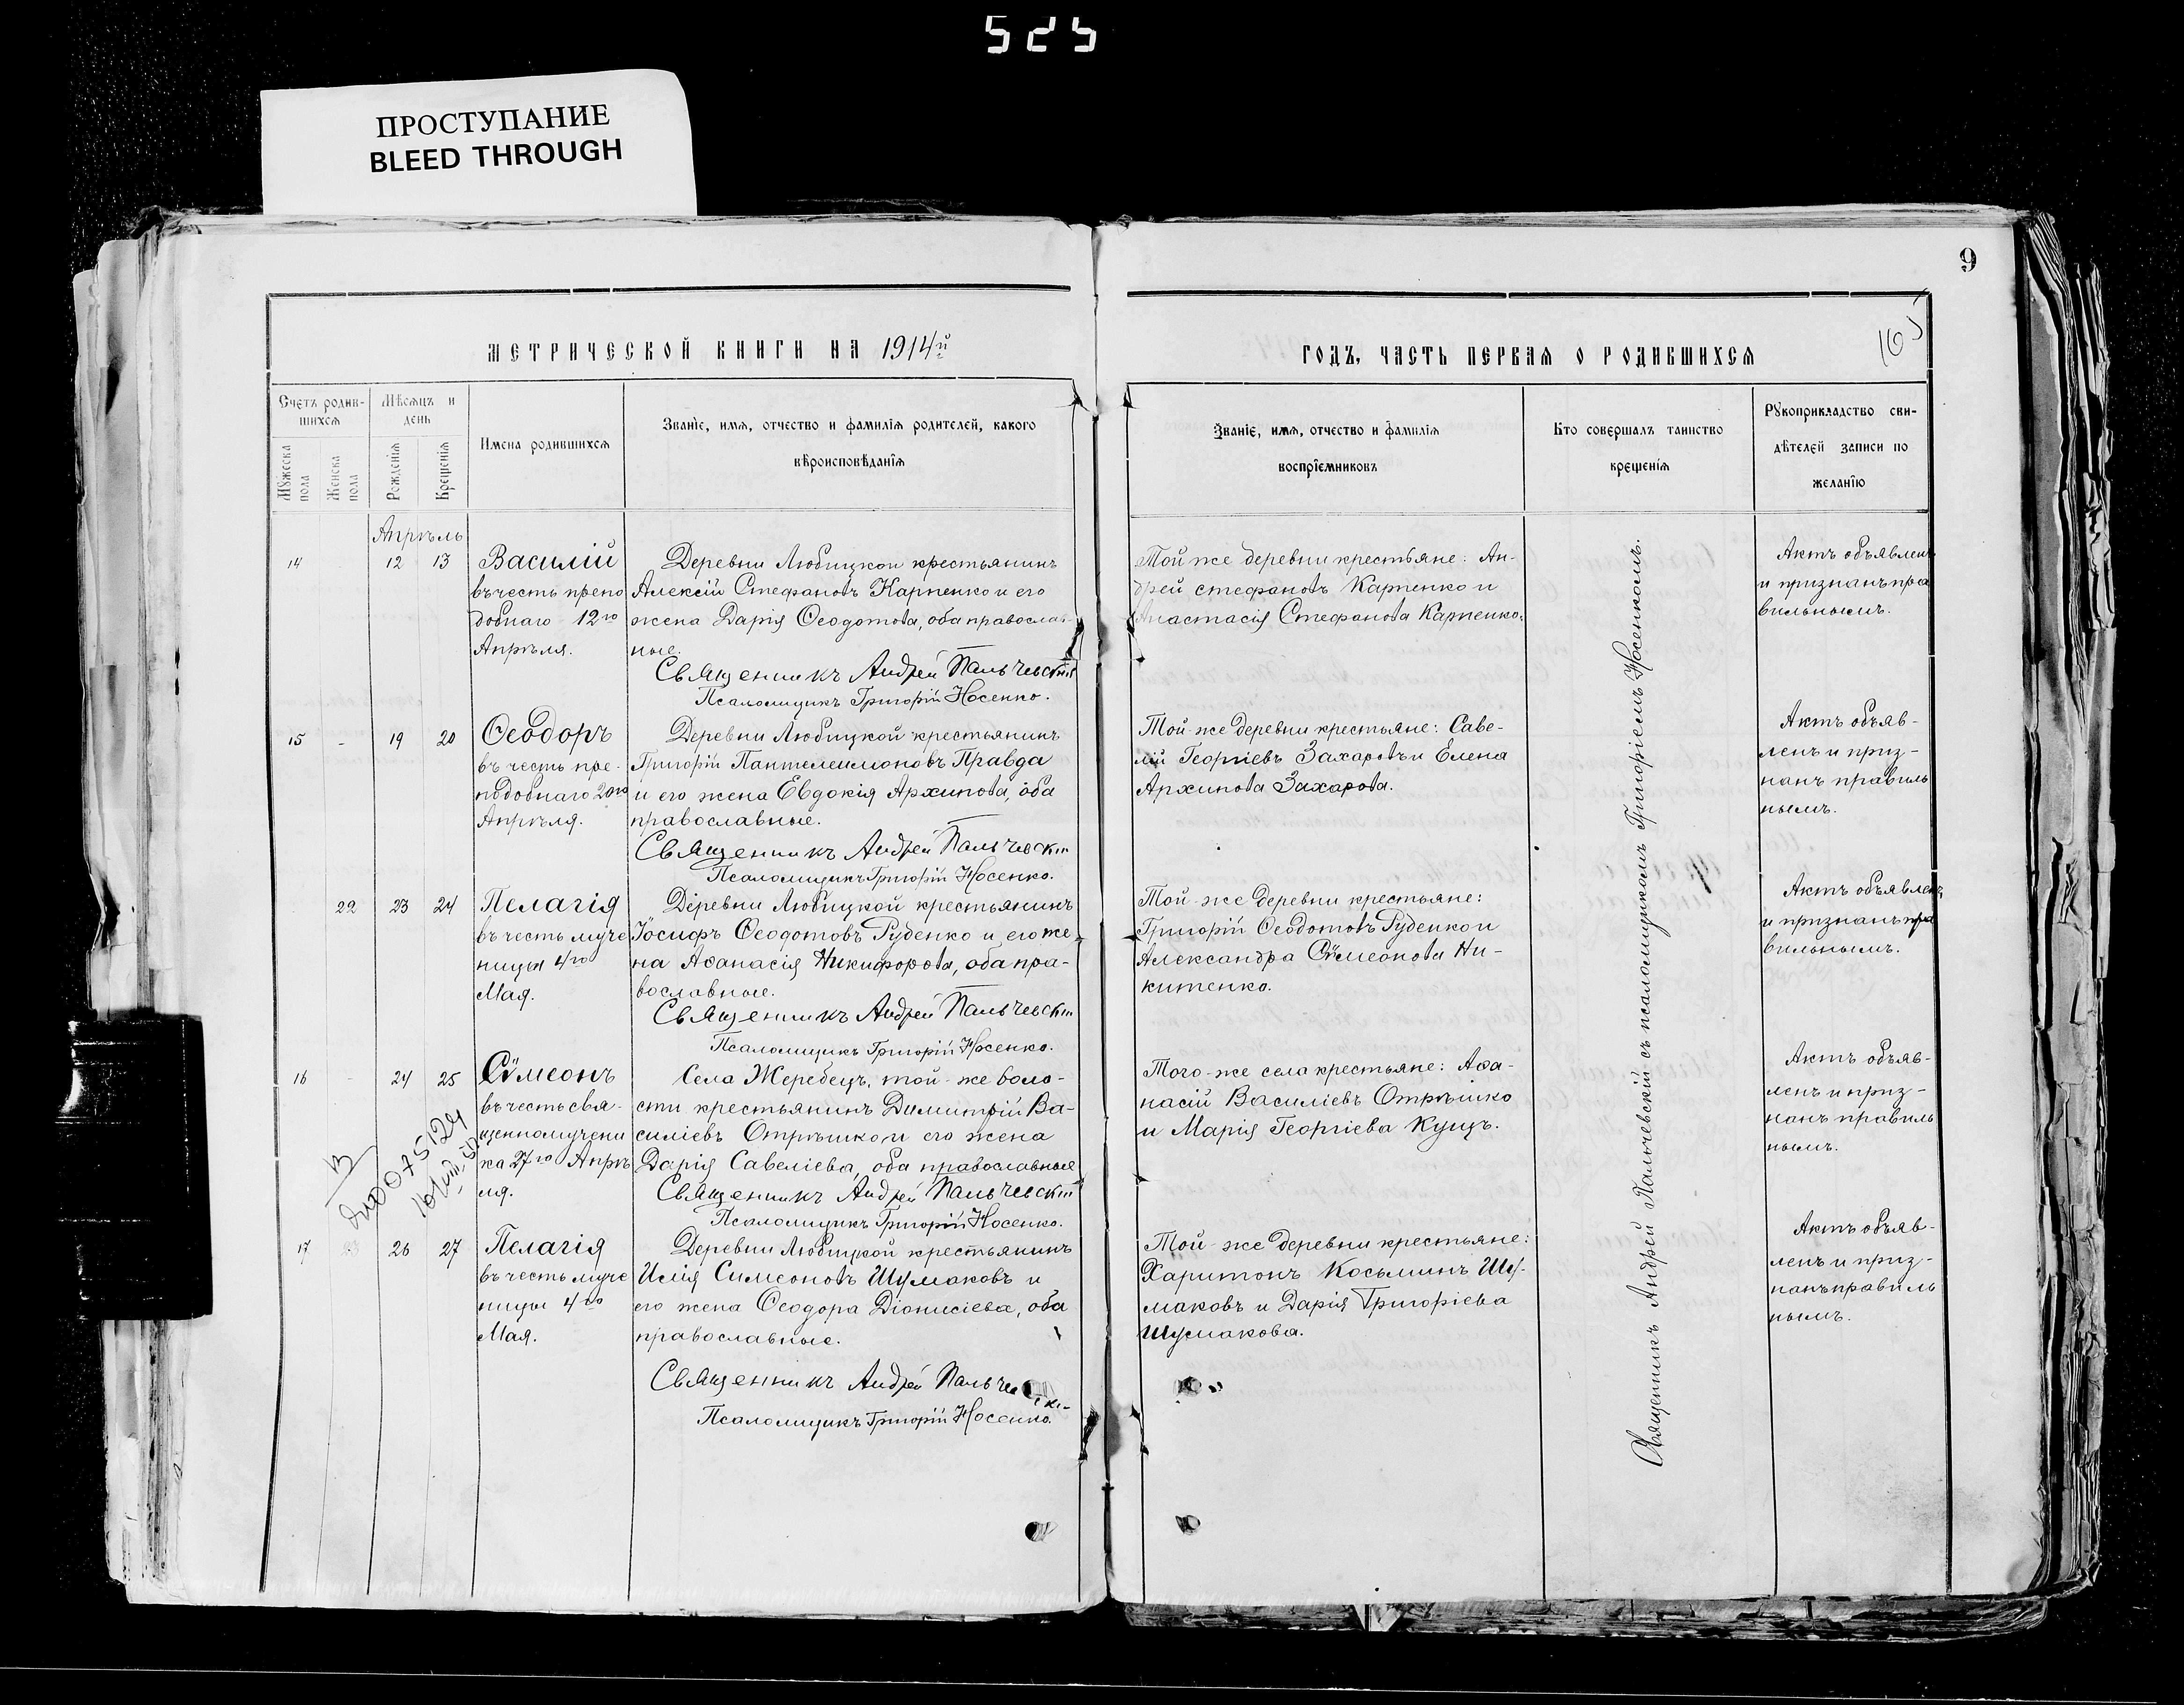 525
ПРОСТУПАНИЕ
BLEED THROUGH
9
МЕТРИЧЕСКОЙ КНИГИ НА 1914й
ГОДЪ, ЧАСТЬ ПЕРВАЯ О РОДИВШИХСЯ
Счетъ родив-
шихся
Мѣсяцъ и
день
Мужеска
пола
Женска
пола
Рожденія
Крещенія
Имена родившихся
Званіе, имя, отчество и фамилія родителей, какого
вѣроисповѣданія
Званіе, имя, отчество и фамилія
воспріемниковъ
Кто совершалъ таинство
крещенія
Рукоприкладство сви-
дѣтелей записи по
желанію
Апрѣль
14 12 13
Василій
въ честь препо
добнаго 12го
Апрѣля.
Деревни Любицкой крестьянинъ
Алексій Стефановъ Карпенко и его
жена Дарія Ѳеодотова, оба православ-
ные.
Священникъ Андрей Пальчевскій
Псаломщикъ Григорій Носенко.
Той же деревни крестьяне: Ан-
дрей Стефановъ Карпенко и
Анастасія Стефанова Карпенко.
Актъ объявленъ
и признанъ пра
вильнымъ.
15 - 19 20
Ѳеодоръ
въ честь пре-
подобнаго 20го
Апрѣля.
Деревни Любицкой крестьянинъ
Григорій Пантелеимоновъ Правда
и его жена Евдокія Архипова, оба
православные.
Священникъ Андрей Пальчевскій
Псаломщикъ Григорій Носенко.
Той-же деревни крестьяне: Саве-
лій Георгіевъ Захаровъ и Елена
Архипова Захарова.
Актъ объяв-
ленъ и приз-
нанъ правиль
нымъ.
22 23 24
Пелагія
въ честь муче
ницы 4го
Мая.
Деревни Любицкой крестьянинъ
Іосифъ Ѳеодотовъ Руденко и его же-
на Аѳанасія Никифорова, оба пра-
вославные.
Священникъ Андрей Пальчевскій
Псаломщикъ Григорій Носенко.
Той-же деревни крестьяне:
Григорій Ѳеодотовъ Руденко и
Александра Сѵмеонова Ни-
китенко.
Актъ объявленъ
и признанъ пра
вильнымъ.
16 - 24 25
Сѵмеонъ
въ честь свя-
щенномучени
ка 27го Апрѣ
ля.
Села Жеребецъ, той-же воло-
сти крестьянинъ Димитрій Ва-
силіевъ Отрѣшко и его жена
Дарія Савеліева, оба православные
Священникъ Андрей Пальчевскій
Псаломщикъ Григорій Носенко.
Того-же села крестьяне: Аѳа-
насій Василіевъ Отрѣшко
и Марія Георгіева Куцъ.
Актъ объяв-
ленъ и приз-
нанъ правиль
нымъ.
17 23 26 27
Пелагія
въ честь муче
ницы 4го
Мая.
Деревни Любицкой крестьянинъ
Илія Симеоновъ Шумаковъ и
его жена Ѳеодора Діонисіева, оба
православные.
Священникъ Андрей Пальчевскі
Псаломщикъ Григорій Носенко.
Той-же деревни крестьяне:
Харитонъ Косьминъ Шу-
маковъ и Дарія Григоріева
Шумакова.
Актъ объяв-
ленъ и приз-
нанъ правиль
нымъ.
Священникъ Андрей Пальчевскій съ псаломщикомъ Григоріемъ Носенкомъ.